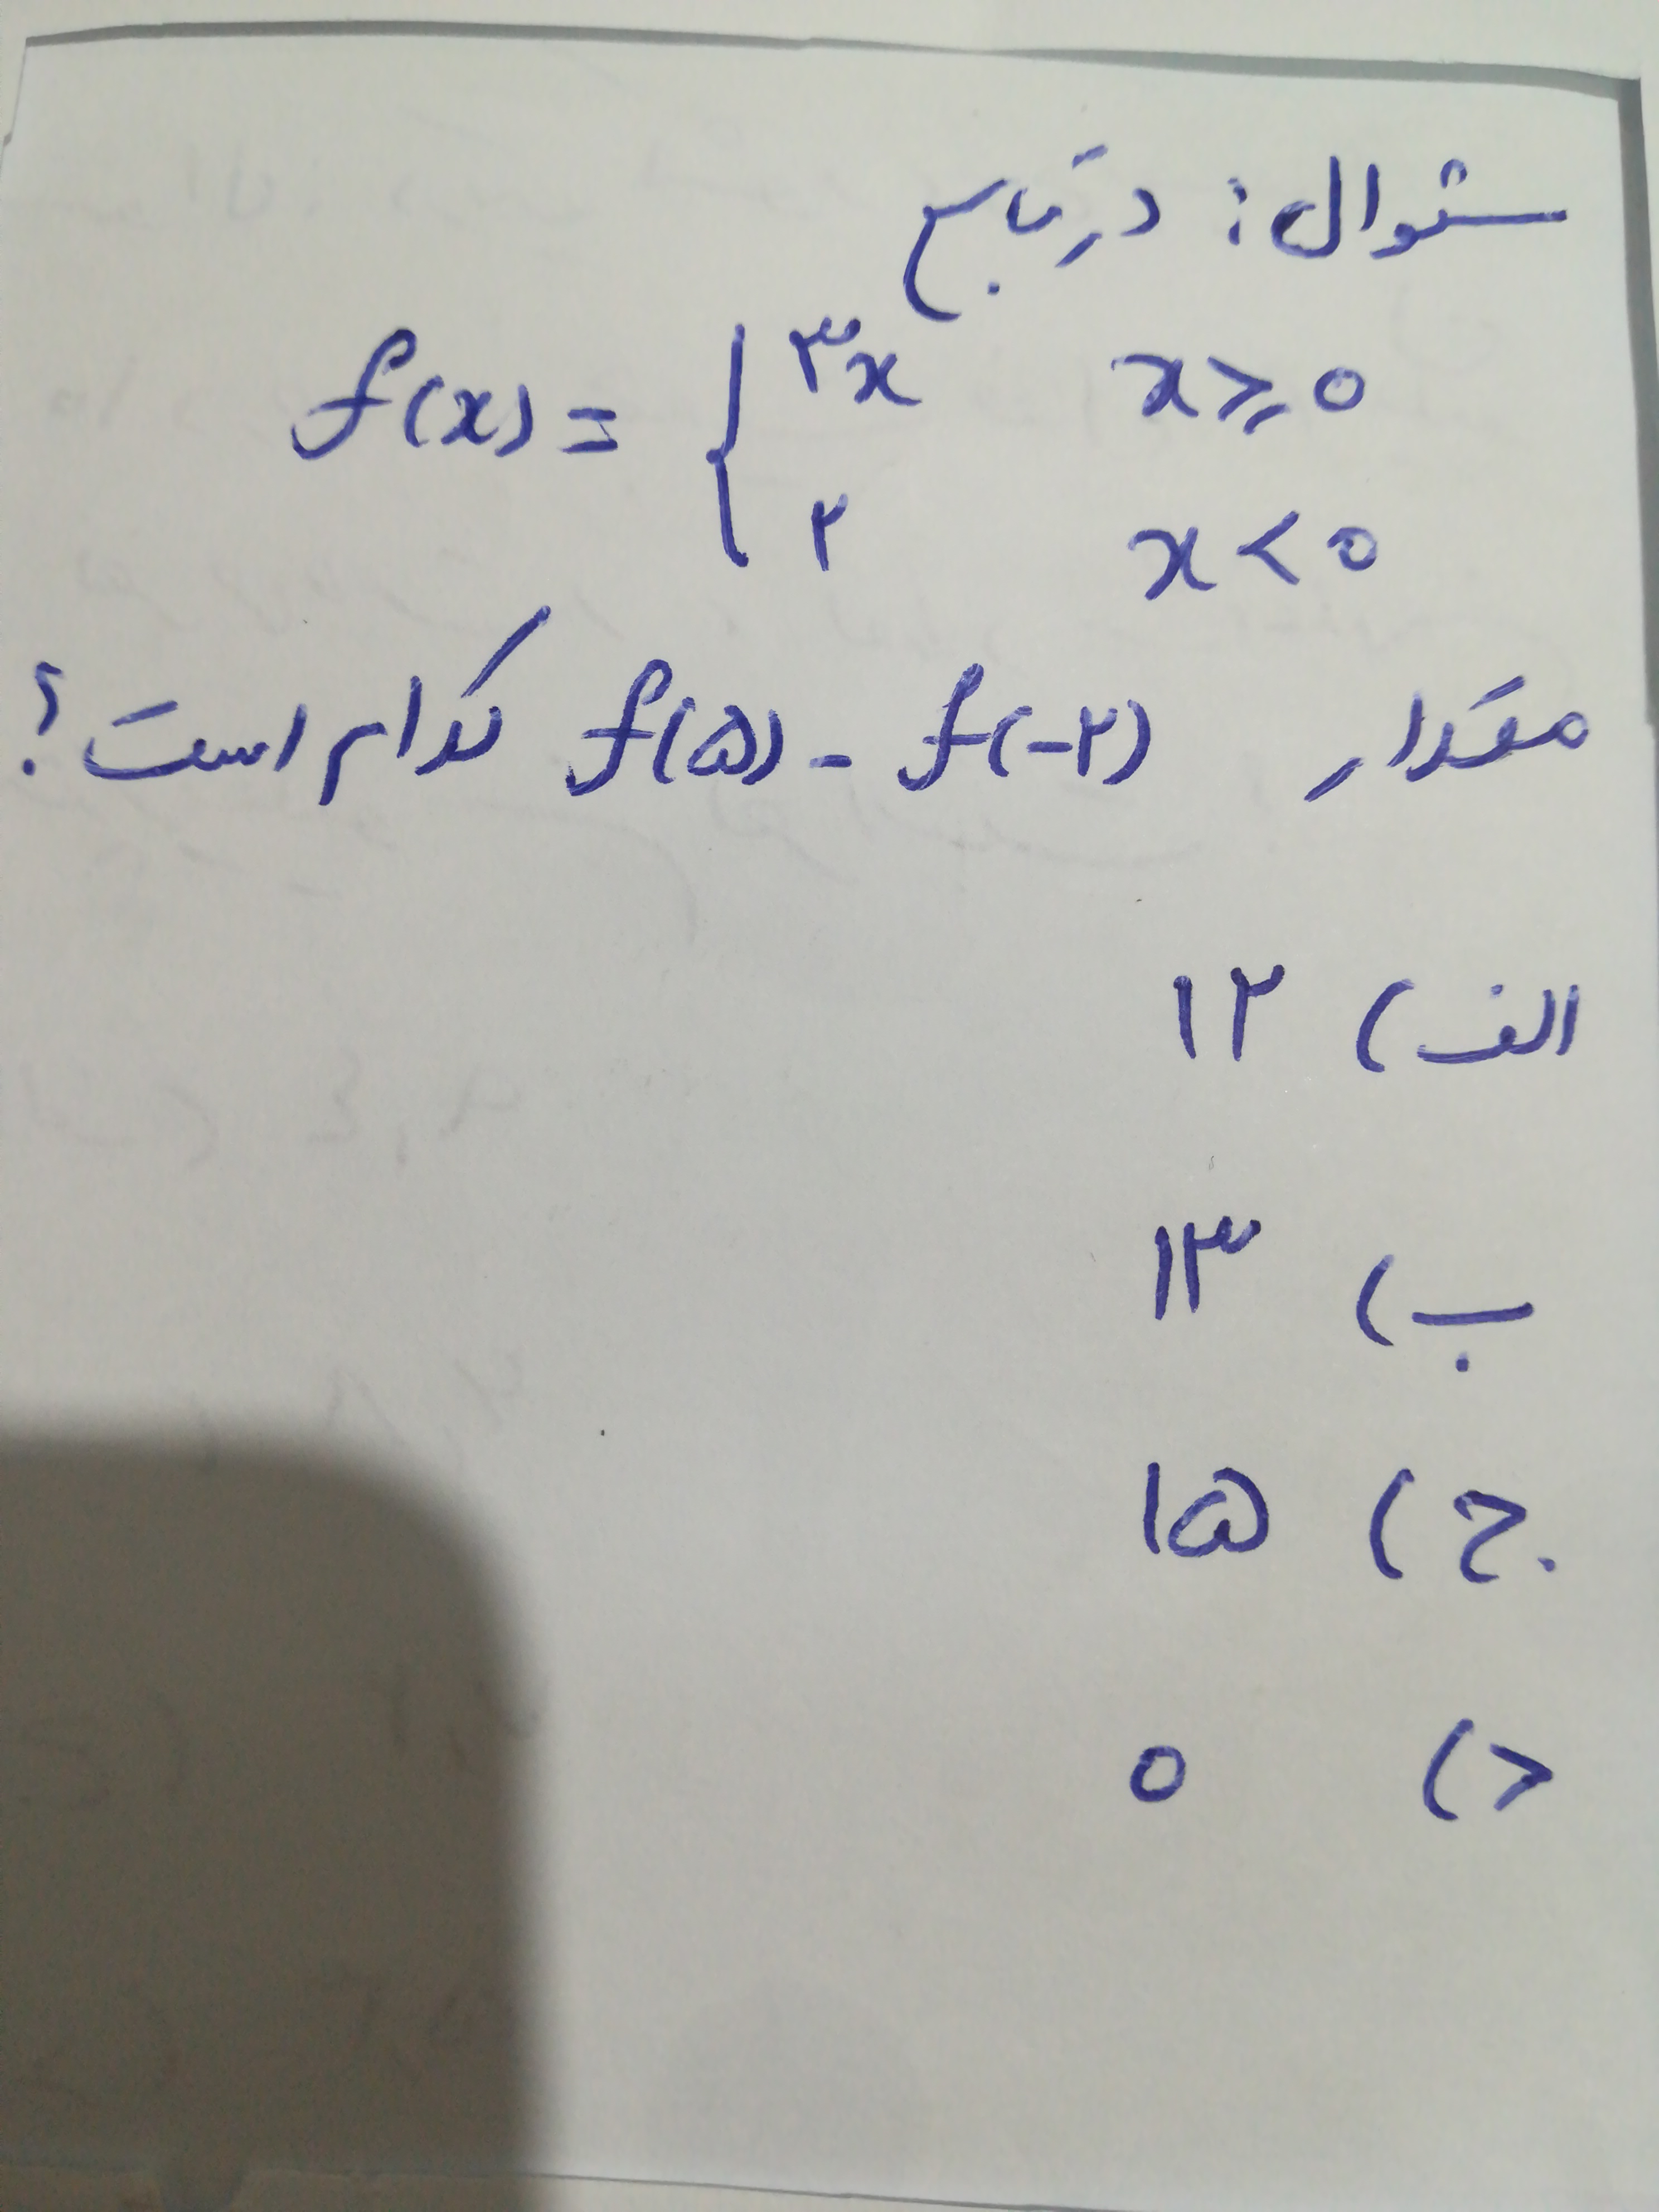 سئوال: در تابع
f(x) = { ۳x x ≥ 0
۲ x < 0
مقدار f(۵) - f(-۲) کدام است؟
الف) ۱۲
ب) ۱۳
ج) ۱۵
د) 0